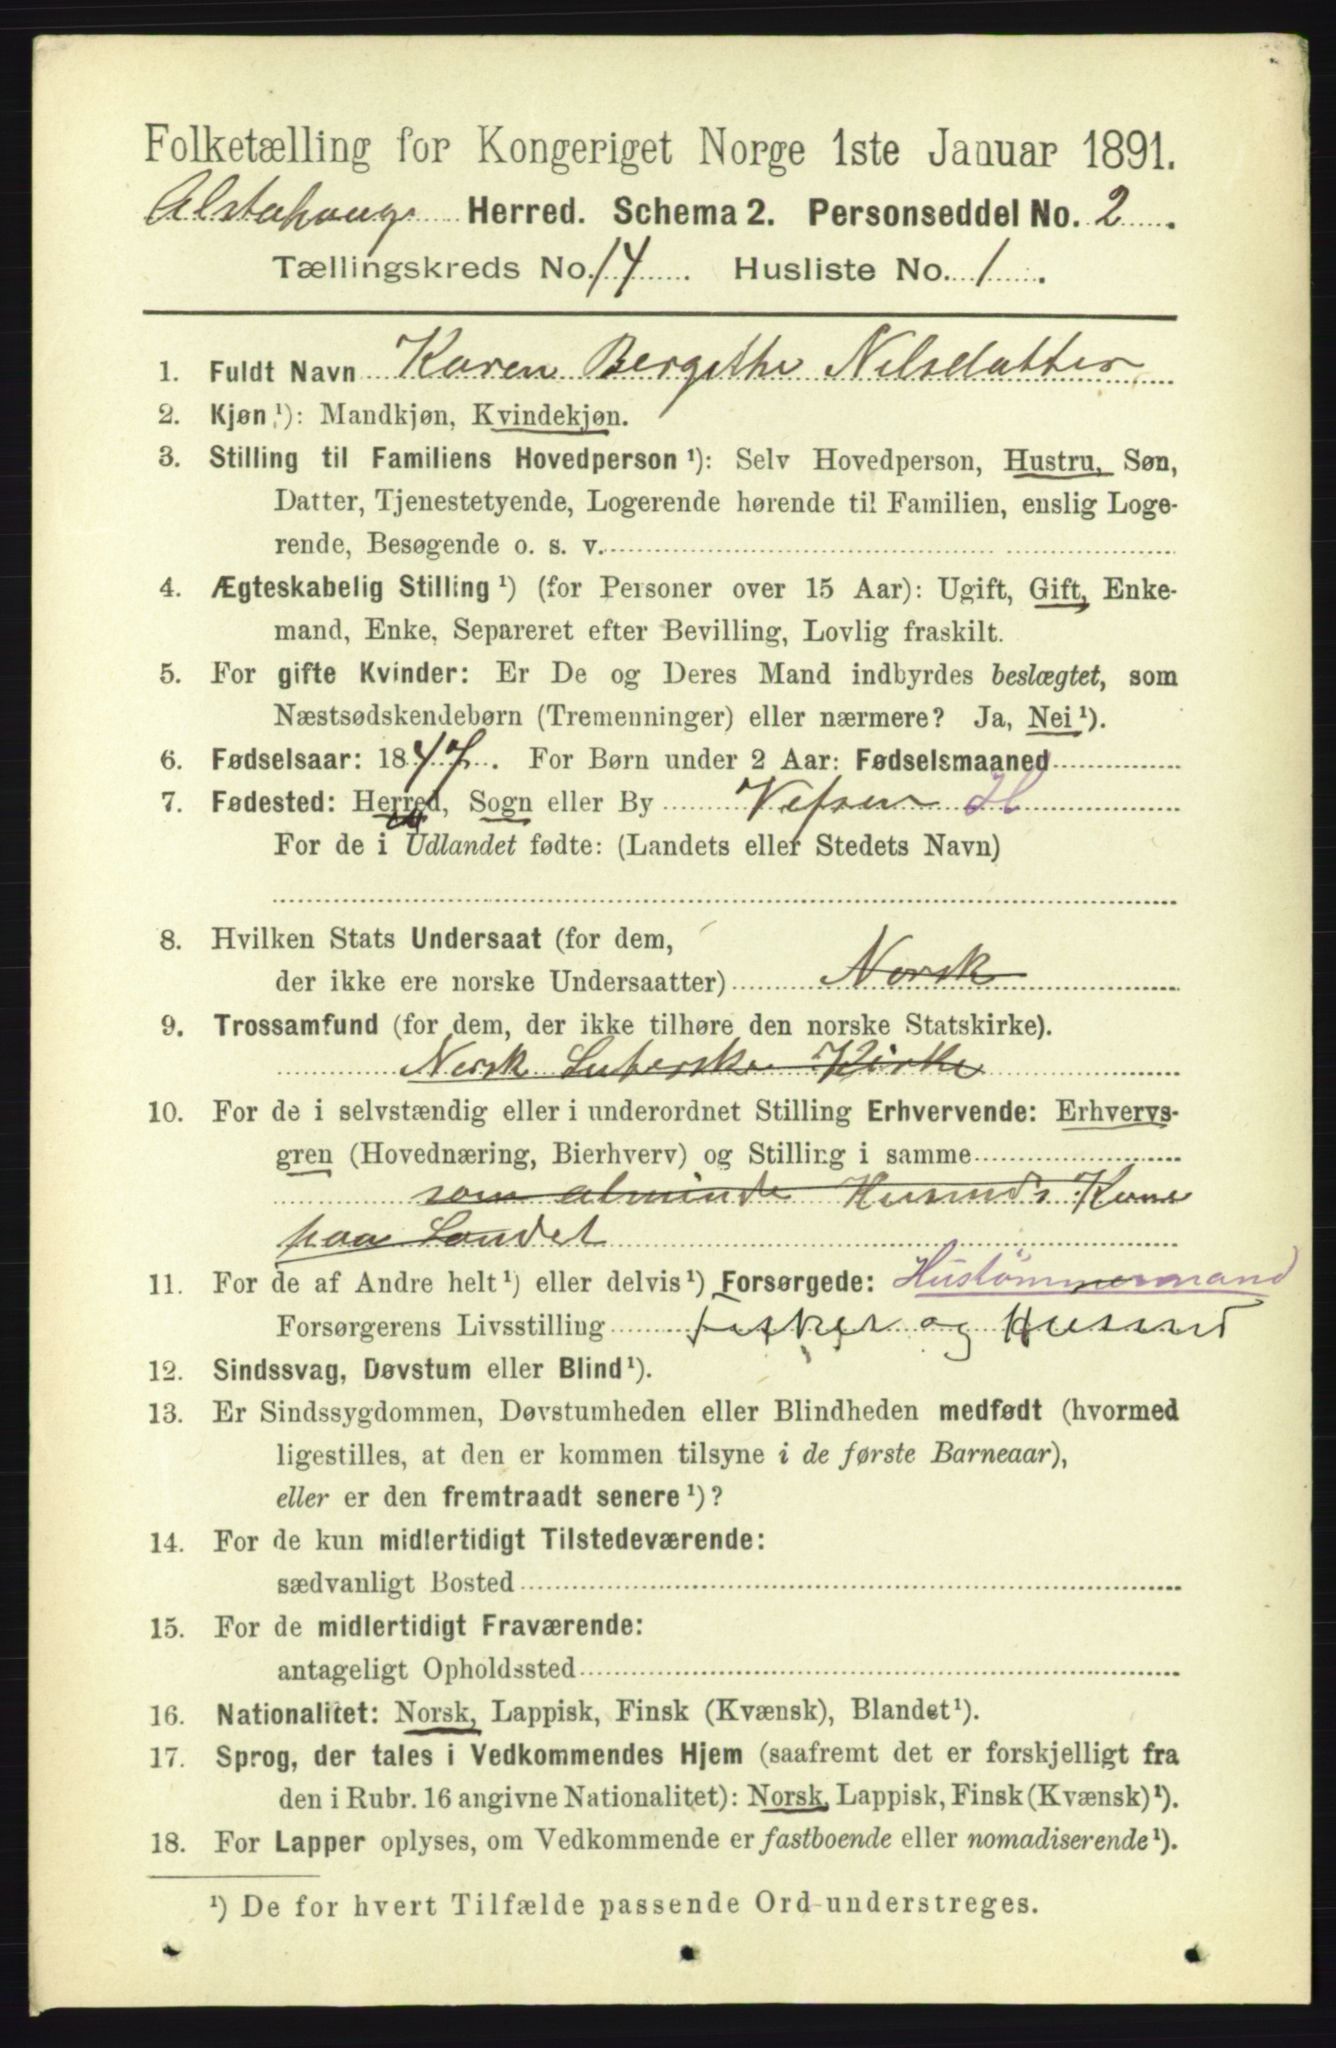 Folketælling for Kongeriget Norge 1ste Januar 1891.
Alstahoug Herred. Schema 2. Personseddel No. 2.
Tællingskreds No. 14. Husliste No. 1.
1. Fuldt Navn Karen Bergithe Nilsdatter
2. Kjøn ¹): Mandkjøn, Kvindekjøn.
3. Stilling til Familiens Hovedperson ¹): Selv Hovedperson, Hustru, Søn,
Datter, Tjenestetyende, Logerende hørende til Familien, enslig Loge-
rende, Besøgende o. s. v.
4. Ægteskabelig Stilling ¹) (for Personer over 15 Aar): Ugift, Gift, Enke-
mand, Enke, Separeret efter Bevilling, Lovlig fraskilt.
5. For gifte Kvinder: Er De og Deres Mand indbyrdes beslægtet, som
Næstsødskendebørn (Tremenninger) eller nærmere? Ja, Nei ¹).
6. Fødselsaar: 1847. For Børn under 2 Aar: Fødselsmaaned
7. Fødested: Herred, Sogn eller By Vefsen H
For de i Udlandet fødte: (Landets eller Stedets Navn)
8. Hvilken Stats Undersaat (for dem,
der ikke ere norske Undersaatter) Norsk
9. Trossamfund (for dem, der ikke tilhøre den norske Statskirke).
Norsk Luterske Kirke
10. For de i selvstændig eller i underordnet Stilling Erhvervende: Erhvervs-
gren (Hovednæring, Bierhverv) og Stilling i samme
som alminde Husmd's Kone
paa Landet
11. For de af Andre helt ¹) eller delvis ¹) Forsørgede: Hustømmermand
Forsørgerens Livsstilling Fisker og Husmd
12. Sindssvag, Døvstum eller Blind ¹).
13. Er Sindssygdommen, Døvstumheden eller Blindheden medfødt (hvormed
ligestilles, at den er kommen tilsyne i de første Barneaar),
eller er den fremtraadt senere ¹)?
14. For de kun midlertidigt Tilstedeværende:
sædvanligt Bosted
15. For de midlertidigt Fraværende:
antageligt Opholdssted
16. Nationalitet: Norsk, Lappisk, Finsk (Kvænsk), Blandet ¹).
17. Sprog, der tales i Vedkommendes Hjem (saafremt det er forskjelligt fra
den i Rubr. 16 angivne Nationalitet): Norsk, Lappisk, Finsk (Kvænsk) ¹).
18. For Lapper oplyses, om Vedkommende er fastboende eller nomadiserende ¹).
¹) De for hvert Tilfælde passende Ord understreges.